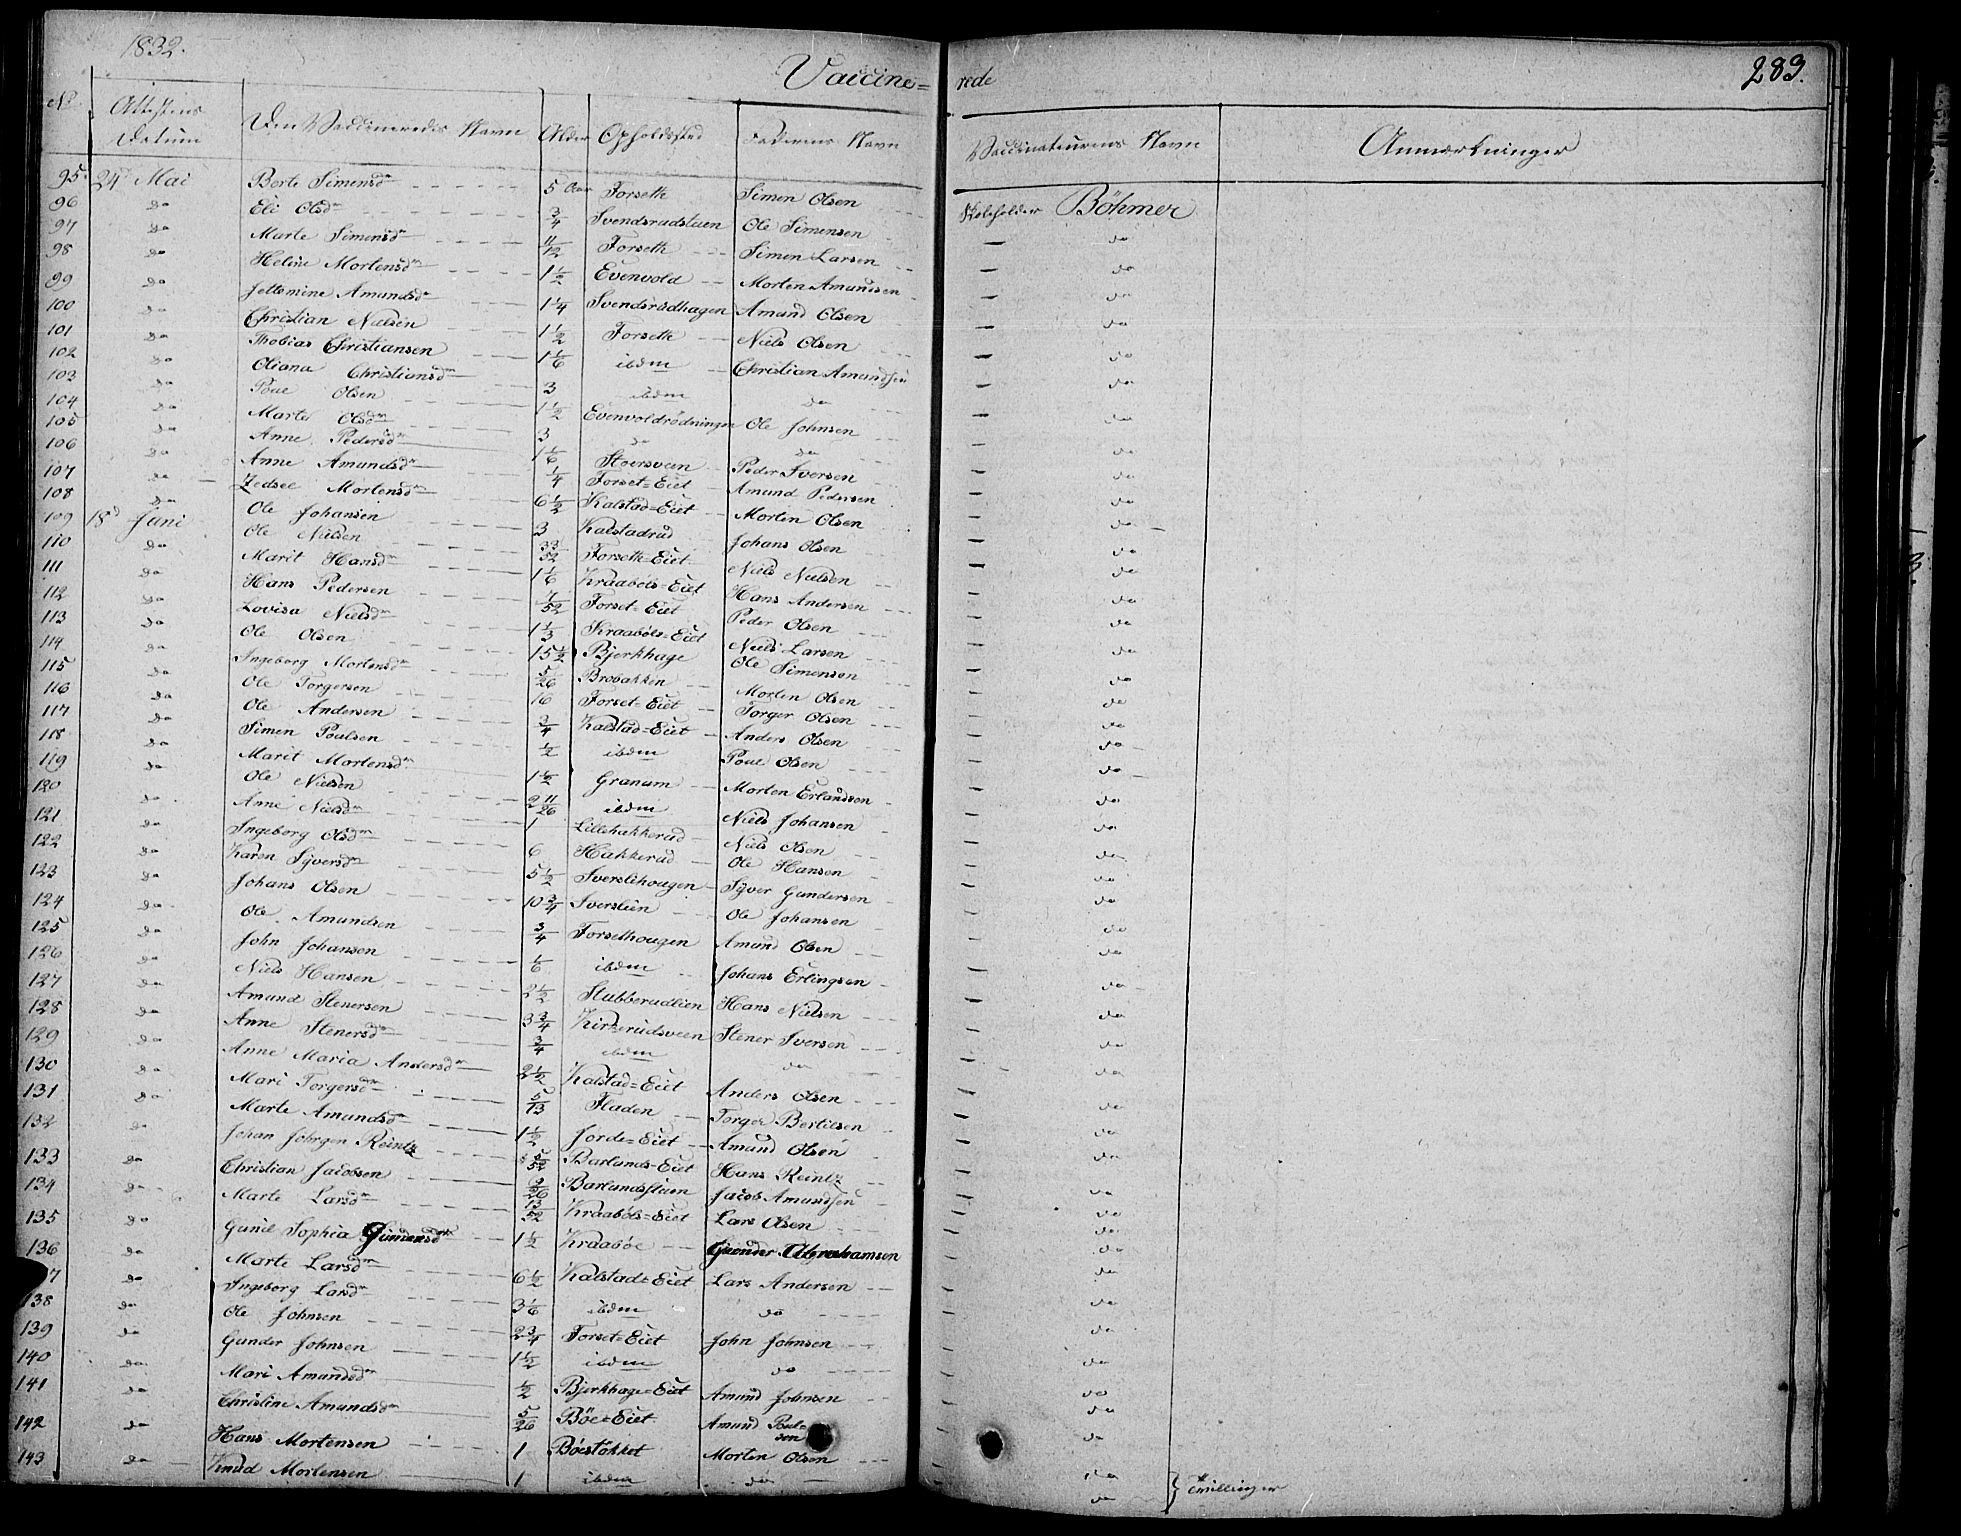 1832.
Vaccine=
rede
283.
No Attestens Datum Den Vaccineredes Navn Alder Opholdssted Faderens Navn Vaccinateurens Navn Anmærkninger
95. 24 Mai Berte Simensdr 5 Aar Forseth Simen Olsen Böhmer
96 do Eli Olsdr 3/4 Svendsrudstuen Ole Simensen do
97 do Marte Simensdr 11/12 Forseth Simen Larsen do
98 do Helene Mortensdr 1 1/2 Evenvold Morten Amundsen do
99 do Jettemine Amundsdr 1 1/4 Svendsrudhagen Amund Olsen do
100 do Christian Nielsen 1 1/2 Forseth Niels Olsen do
101 do Thobias Christiansen 1 1/6 ibdm Christian Amundsen do
102 do Oliana Christiansdr 3 ibdm do do
103 do Poul Olsen 1 1/2 Evenvoldrödningen Ole Johnsen do
104 do Marte Olsdr 3 do do do
105 do Anne Pedersdr 1 1/6 Stoersveen Peder Iversen do
106 do Anne Amundsdr 1/4 Forset=Eiet Amund Pedersen do
107 do Zedsel Mortensdr 6 1/2 Kalstad=Eiet Morten Olsen do
108 do Ole Johansen 3 Kalstadrud Johans Olsen do
109 18d Juni Ole Nielsen 33/52 Forseth=Eiet Niels Nielsen do
110 do Marit Hansdr 1 1/6 Kraaböls=Eiet Hans Andersen do
111 do Hans Pedersen 7/52 Forset=Eiet Peder Olsen do
112 do Lovisa Nielsdr 1 1/3 Kraaböls=Eiet Niels Larsen do
113 do Ole Olsen 15 1/2 Bjerkhage Ole Simensen do
114 do Ingeborg Mortensdr 5/26 Brobakken Morten Olsen do
115 do Ole Torgersen 16 Forset=Eiet Torger Olsen do
116 do Ole Andersen 3/4 Kalstad=Eiet Anders Olsen do
117 do Simen Poulsen 1/2 ibdm Poul Olsen do
118 do Marit Mortensdr 1 1/2 Granum Morten Erlandsen do
119 do Ole Nielsen 2 11/26 ibdm Niels Johansen do
120 do Anne Nielsdr 1 Lillehakkerud Niels Olsen do
121 do Ingeborg Olsdr 6 Hakkerud Ole Hansen do
122 do Karen Syversdr 5 1/2 Iverslihougen Syver Gundersen do
123 do Johans Olsen 10 3/4 Iverslien Ole Johansen do
124 do Ole Amundsen 3/4 Forsethougen Amund Olsen do
125 do John Johansen 1/6 ibdm Johans Erlingsen do
126 do Niels Hansen 2 1/2 Stubberudlien Hans Nielsen do
127 do Amund Stenersen 3 3/4 Kirkerudsveen Stener Iversen do
128 do Anne Stenersdr 3/4 ibdm do
129 do Anne Maria Andersdr 2 1/2 Kalstad=Eiet Anders Olsen do
130 do Mari Torgersdr 5/13 Fladen Torger Bertilsen do
131 do Marte Amundsdr 1 1/2 Jorde=Eiet Amund Olsen do
132 do Johan Jöhrgen Reintz 5/52 Barlunds=Eiet Hans Reintz do
133 do Christian Jacobsen 9/26 Barlundstuen Jacob Amundsen do
134 do Marte Larsdr 13/52 Kraaböls=Eiet Lars Olsen do
135 do Gunil Sophia Gundersdr 1 1/2 Kraaböl Gunder Abrahamsen do
136 do Marte Larsdr 6 1/2 Kalstad=Eiet Lars Andersen do
7 do Ingeborg Larsdr 3 1/6 ibdm do do
138 do Ole Johnsen 2 3/4 Forset=Eiet John Johnsen do
139 do Gunder Johnsen 1 1/2 ibdm do do
140 do Mari Amundsdr 1/2 Bjerkhage=Eiet Amund Johnsen do
141 do Christine Amundsdr 5/26 Böe=Eiet Amund Poulsen do
142 do Hans Mortensen 1 Böestökket Morten Olsen do
143 do Knud Mortensen 1 ibdm do do } tvillinger